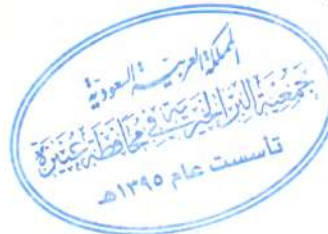 المملكة العربية السعودية
جمعية البر الخيرية في محافظة عنيزة
تأسست عام ١٣٩٥هـ